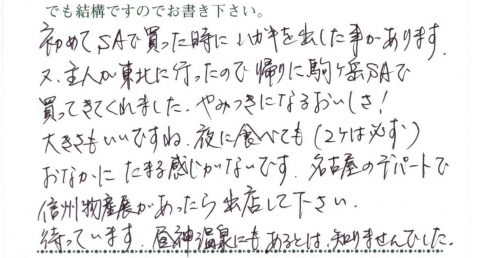 でも結構ですのでお書き下さい。
初めてSAで買った時にハガキを出した事があります。
又、主人が東北に行ったので帰りに駒ヶ岳SAで
買ってきてくれました。やみつきになるおいしさ！
大きさもいいですね。夜に食べても（2ヶは必ず）
おなかにたまる感じがないです。名古屋のデパートで
信州物産展があったら出店して下さい。
待っています。昼神温泉にもあるとは、知りませんでした。